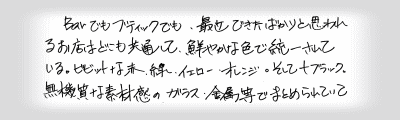 Barでもブティックでも、最近できたばかりと思われ
るお店はどこも共通して、鮮やかな色で統一されて
いる。ビビットな赤、緑、イエロー、オレンジ。そして+ブラック。
無機質な素材感のガラス、金属等でまとめられていて